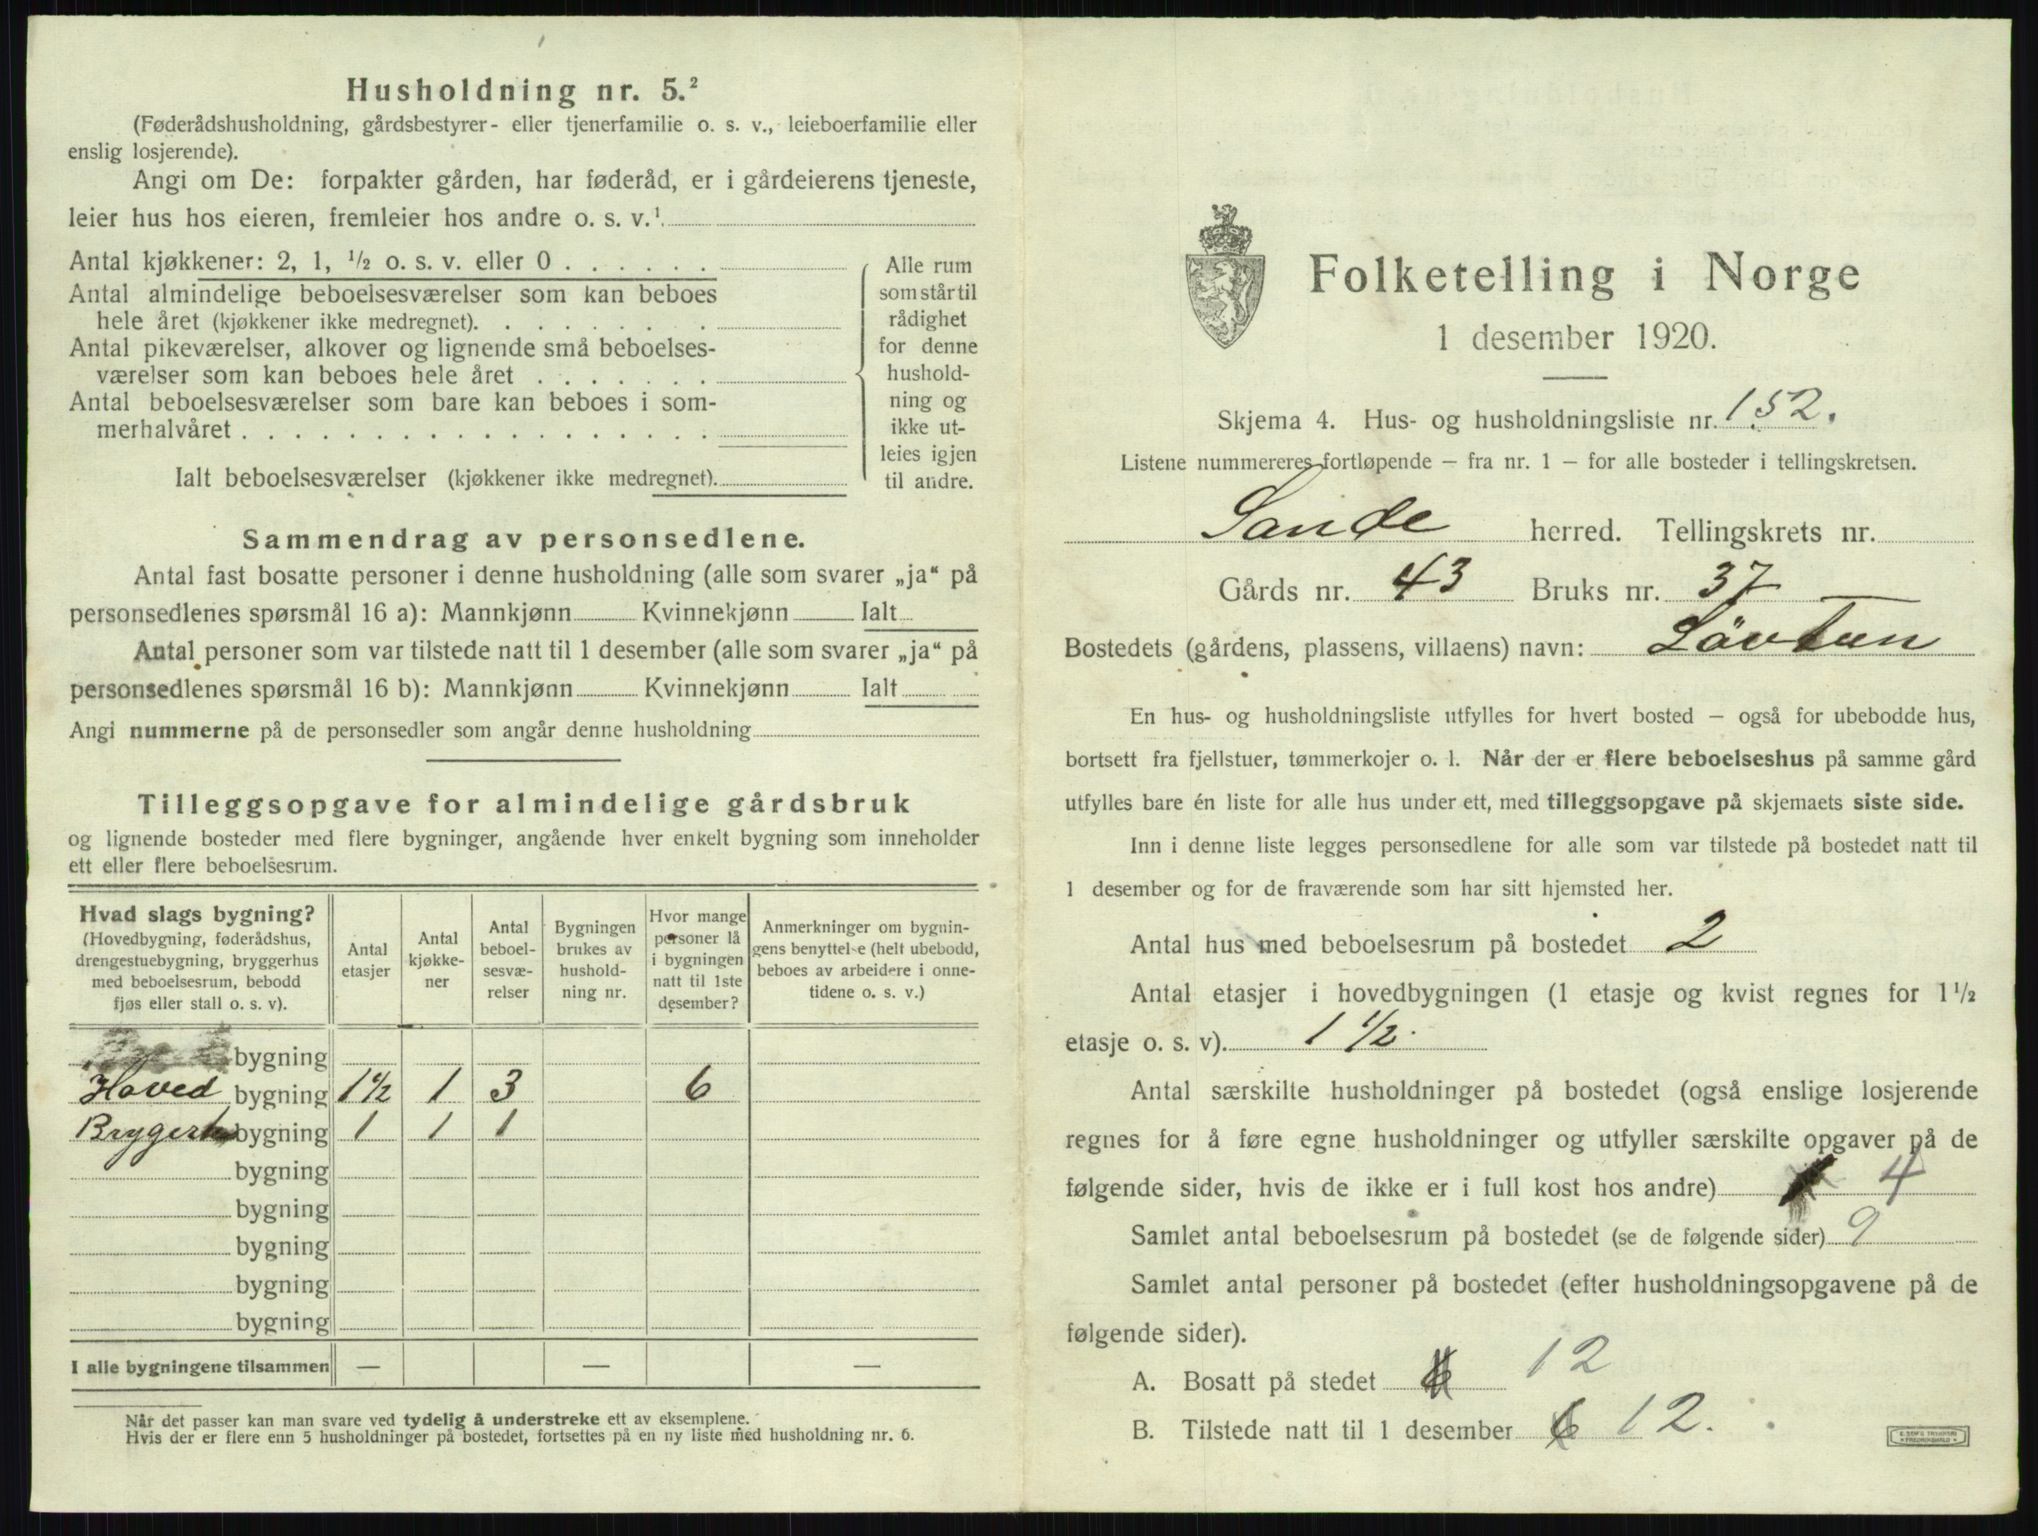 Husholdning nr. 5.²
(Føderådshusholdning, gårdsbestyrer- eller tjenerfamilie o. s. v., leieboerfamilie eller
enslig losjerende).
Angi om De: forpakter gården, har føderåd, er i gårdeierens tjeneste,
leier hus hos eieren, fremleier hos andre o. s. v.¹
Antal kjøkkener: 2, 1, ½ o. s. v. eller 0 . . . . . .
Antal almindelige beboelsesværelser som kan beboes
hele året (kjøkkener ikke medregnet). . . . . . . .
Antal pikeværelser, alkover og lignende små beboelses-
værelser som kan beboes hele året . . . . . . .
Antal beboelsesværelser som bare kan beboes i som-
merhalvåret . . . . . . . . . . . . . . . . . .
Ialt beboelsesværelser (kjøkkener ikke medregnet).
Alle rum
som står til
rådighet
for denne
hushold-
ning og
ikke ut-
leies igjen
til andre.
Sammendrag av personsedlene.
Antal fast bosatte personer i denne husholdning (alle som svarer „ja“ på
personsedlenes spørsmål 16 a): Mannkjønn Kvinnekjønn Ialt
Antal personer som var tilstede natt til 1 desember (alle som svarer „ja“ på
personsedlenes spørsmål 16 b): Mannkjønn Kvinnekjønn Ialt
Angi nummerne på de personsedler som angår denne husholdning
Tilleggsopgave for almindelige gårdsbruk
og lignende bosteder med flere bygninger, angående hver enkelt bygning som inneholder
ett eller flere beboelsesrum.
Hvad slags bygning?
(Hovedbygning, føderådshus,
drengestuebygning, bryggerhus
med beboelsesrum, bebodd
fjøs eller stall o. s. v).
Antal
etasjer
Antal
kjøkke-
ner
Antal
beboel-
sesvæ-
relser
Bygningen
brukes av
hushold-
ning nr.
Hvor mange
personer lå
i bygningen
natt til 1ste
desember?
Anmerkninger om bygnin-
gens benyttelse (helt ubebodd,
beboes av arbeidere i onne-
tidene o. s. v.)
bygning
Hoved bygning 1½ 1 3 6
bygning 1 1 1
bygning
bygning
bygning
bygning
bygning
I alle bygningene tilsammen — — —
Når det passer kan man svare ved tydelig å understreke ett av eksemplene.
Hvis der er flere enn 5 husholdninger på bostedet, fortsettes på en ny liste med husholdning nr. 6.
Folketelling i Norge
1 desember 1920.
Skjema 4. Hus- og husholdningsliste nr. 152.
Listene nummereres fortløpende — fra nr. 1 — for alle bosteder i tellingskretsen.
Sande herred. Tellingskrets nr.
Gårds nr. 43 Bruks nr. 37
Bostedets (gårdens, plassens, villaens) navn: Lövtun
En hus- og husholdningsliste utfylles for hvert bosted — også for ubebodde hus,
bortsett fra fjellstuer, tømmerkojer o. l. Når der er flere beboelseshus på samme gård
utfylles bare én liste for alle hus under ett, med tilleggsopgave på skjemaets siste side.
Inn i denne liste legges personsedlene for alle som var tilstede på bostedet natt til
1 desember og for de fraværende som har sitt hjemsted her.
Antal hus med beboelsesrum på bostedet 2
Antal etasjer i hovedbygningen (1 etasje og kvist regnes for 1½
etasje o. s. v). 1½.
Antal særskilte husholdninger på bostedet (også enslige losjerende
regnes for å føre egne husholdninger og utfyller særskilte opgaver på de
følgende sider, hvis de ikke er i full kost hos andre) 4
Samlet antal beboelsesrum på bostedet (se de følgende sider) 9
Samlet antal personer på bostedet (efter husholdningsopgavene på de
følgende sider).
A. Bosatt på stedet 12
B. Tilstede natt til 1 desember 6 12.